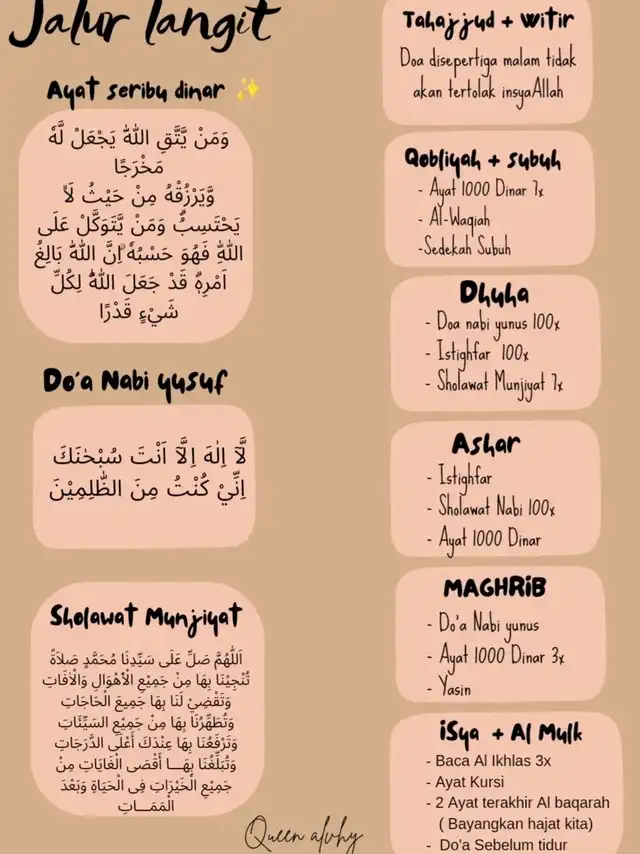 Jalur langit
Ayat seribu dinar ✨
وَمَنْ يَّتَّقِ اللّٰهَ يَجْعَلْ لَّهٗ
مَخْرَجًا
وَّيَرْزُقْهُ مِنْ حَيْثُ لَا
يَحْتَسِبُۗ وَمَنْ يَّتَوَكَّلْ عَلَى
اللّٰهِ فَهُوَ حَسْبُهٗ ۗاِنَّ اللّٰهَ بَالِغُ
اَمْرِهٖۗ قَدْ جَعَلَ اللّٰهُ لِكُلِّ
شَيْءٍ قَدْرًا
Do'a Nabi yusuf
لَّآ اِلٰهَ اِلَّآ اَنْتَ سُبْحٰنَكَ
اِنِّيْ كُنْتُ مِنَ الظّٰلِمِيْنَ
Sholawat Munjiyat
اَللّٰهُمَّ صَلِّ عَلَى سَيِّدِنَا مُحَمَّدٍ صَلاَةً
تُنْجِيْنَا بِهَا مِنْ جَمِيْعِ الْأَهْوَالِ وَالْاٰفَاتِ
وَتَقْضِيْ لَنَا بِهَا جَمِيعَ الْحَاجَاتِ
وَتُطَهِّرُنَا بِهَا مِنْ جَمِيعِ السَيِّئَاتِ
وَتَرْفَعُنَا بِهَا عِنْدَكَ أَعْلَى الدَّرَجَاتِ
وَتُبَلِّغُنَا بِهَـــا أَقْصَى الْغَايَاتِ مِنْ
جَمِيْعِ الْخَيْرَاتِ فِى الْحَيَاةِ وَبَعْدَ
الْمَمَــاتِ
Tahajjud + Witir
Doa disepertiga malam tidak
akan tertolak insyaAllah
Qobliyah + subuh
- Ayat 1000 Dinar 7x
- Al-Waqiah
-Sedekah Subuh
Dhuha
- Doa nabi yunus 100x
- Istighfar 100x
- Sholawat Munjiyat 7x
Ashar
- Istighfar
- Sholawat Nabi 100x
- Ayat 1000 Dinar
MAGHRiB
- Do'a Nabi yunus
- Ayat 1000 Dinar 3x
- Yasin
iSya + Al Mulk
- Baca Al Ikhlas 3x
- Ayat Kursi
- 2 Ayat terakhir Al baqarah
( Bayangkan hajat kita)
- Do'a Sebelum tidur
Queen alvhy